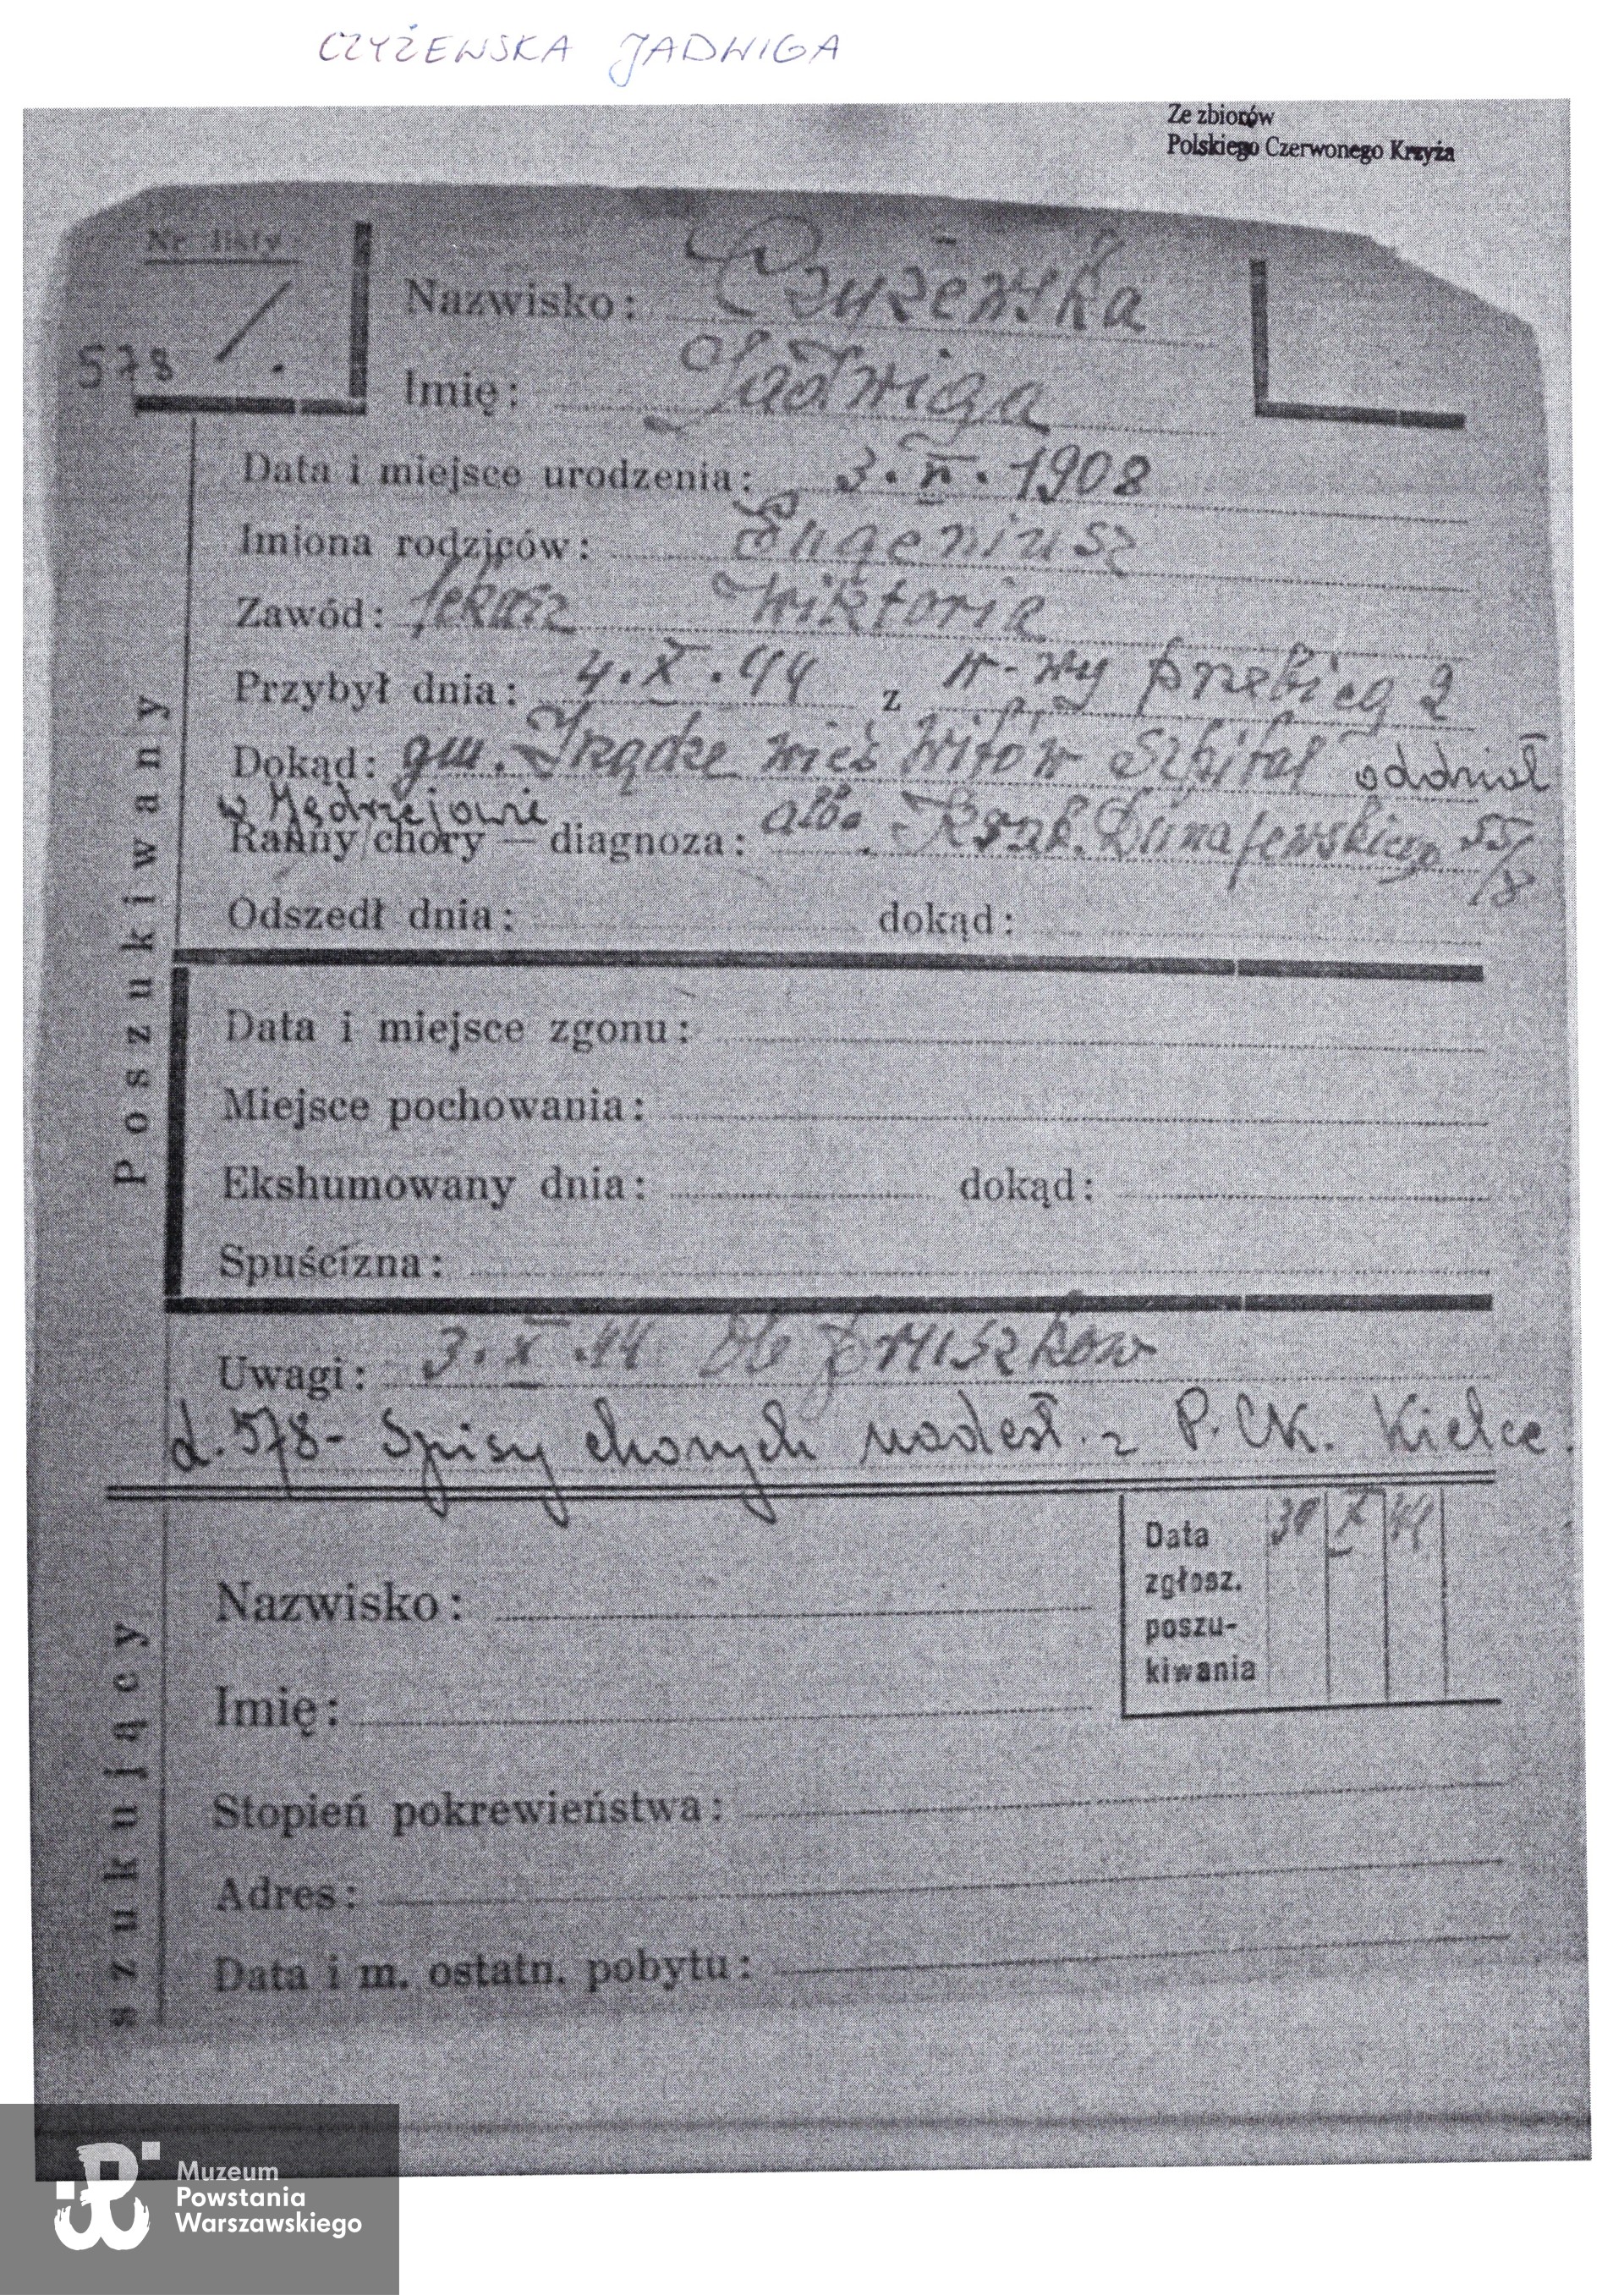 CZYŻEWSKA JADWIGA
Ze zbiorów
Polskiego Czerwonego Krzyża
Nr listy
578 /.
Nazwisko: Czyżewska
Imię: Jadwiga
Poszukiwany
Data i miejsce urodzenia: 3. . 1908
Imiona rodziców: Eugeniusz
Zawód: lekarz Wiktoria
Przybył dnia: 4.X.44 z W-wy przebieg 2
Dokąd: gm. Irządze wieś Witów Szpital oddział
w Jędrzejowie
Ranny/chory — diagnoza: alb. Krak. Dunajewskiego 55/8
Odszedł dnia: dokąd:
Data i miejsce zgonu:
Miejsce pochowania:
Ekshumowany dnia: dokąd:
Spuścizna:
Uwagi: 3.X.44 Ob Pruszków
L.578- Spisy chorych nadesł. z P.CK. Kielce.
szukający
Data zgłosz. poszukiwania X
Nazwisko:
Imię:
Stopień pokrewieństwa:
Adres:
Data i m. ostatn. pobytu:
Muzeum
Powstania
Warszawskiego